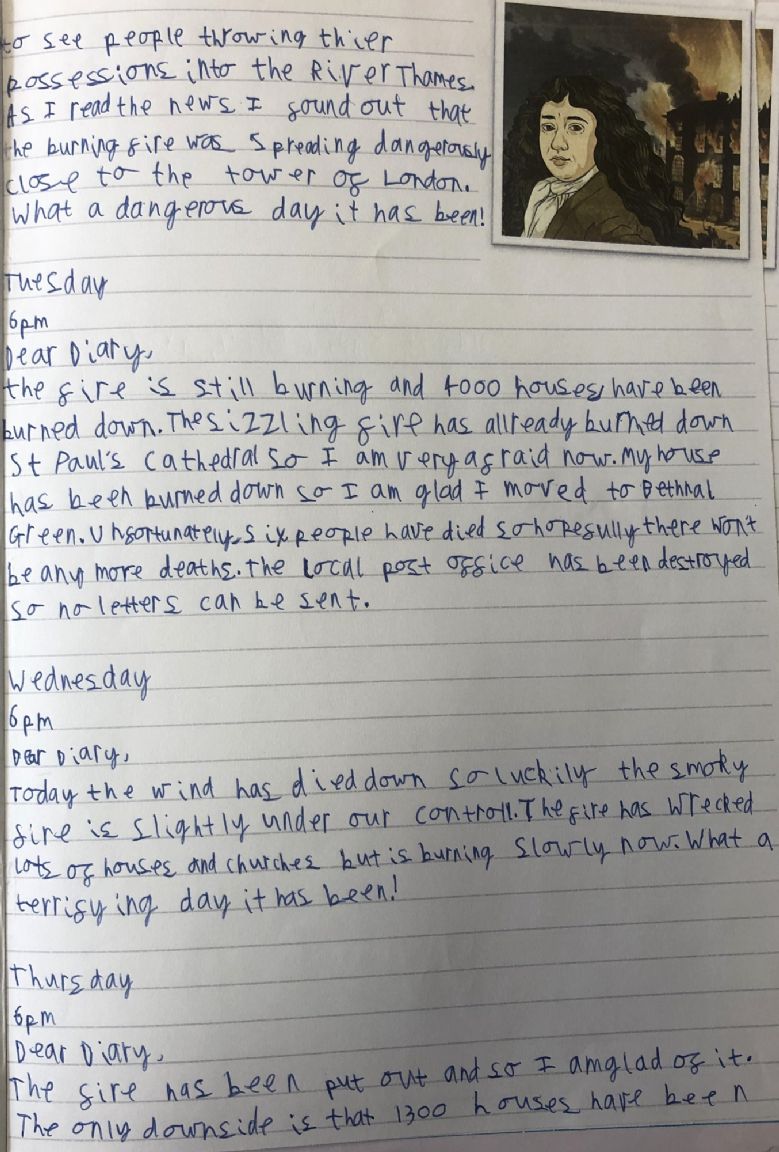 to see people throwing thier
possessions into the River Thames.
As I read the news I found out that
the burning fire was spreading dangerously
close to the tower of London.
What a dangerous day it has been!
Tuesday
6pm
Dear Diary,
the fire is still burning and 4000 houses have been
burned down. The sizzling fire has allready burned down
St Paul's Cathedral so I am very afraid now. My house
has been burned down so I am glad I moved to Bethnal
Green. Unfortunately, six people have died so hopefully there won't
be any more deaths. The local post office has been destroyed
so no letters can be sent.
Wednesday
6pm
Dear Diary,
Today the wind has died down so luckily the smoky
fire is slightly under our controll. The fire has wrecked
lots of houses and churches but is burning slowly now. What a
terrifying day it has been!
Thursday
6pm
Dear Diary,
The fire has been put out and so I am glad of it.
The only downside is that 1300 houses have been